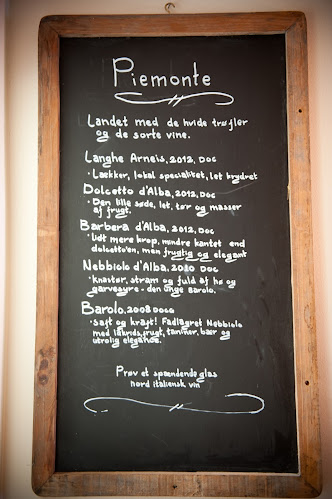 Piemonte
Landet med de hvide trøfler
og de sorte vine.
Langhe Arneis, 2012, DOC
· Lækker, lokal specialitet, let krydret
Dolcetto d'Alba, 2012, DOC
· Den lille søde, let, tør og masser
af frugt.
Barbera d'Alba, 2012, DOC
· Lidt mere krop, mindre kantet end
dolcetto'en, men frugtig og elegant
Nebbiolo d'Alba, 2010 DOC
· knastør, stram og fuld af hø og
garvesyre - den unge Barolo.
Barolo, 2008 DOCG
· Saft og kraft! Fadlagret Nebbiolo
med lakrids, frugt, tanniner, bær og
utrolig elegance.
Prøv et spændende glas
nord italiensk vin